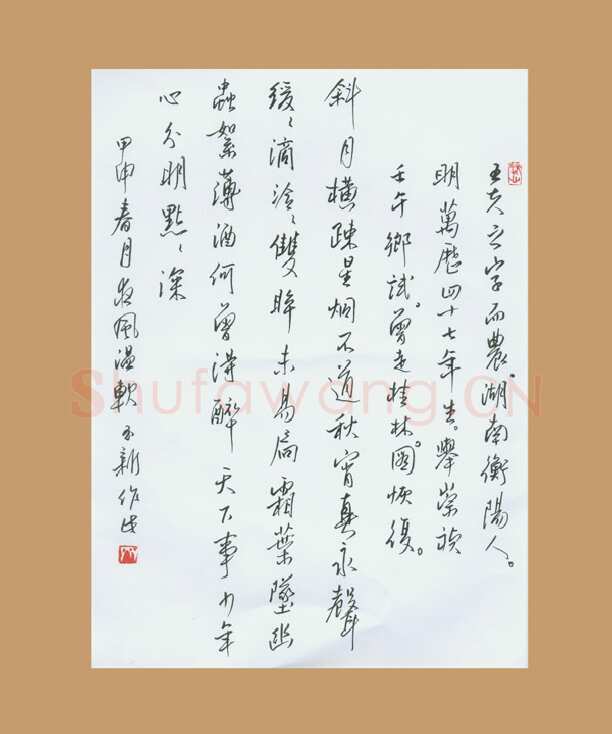 王夫之字而農。湖南衡陽人。
明萬歷四十七年生。舉崇禎
壬午鄉試。曾走桂林。圖恢復。
斜月橫疎星炯不道秋宵真永聲
緩〻滴泠〻雙眸未易扃霜葉墜幽
蟲絮薄酒何曾得醉天下事少年
心分明點〻深
甲申春月夜風溫軟 新作此
Shufawang.CN